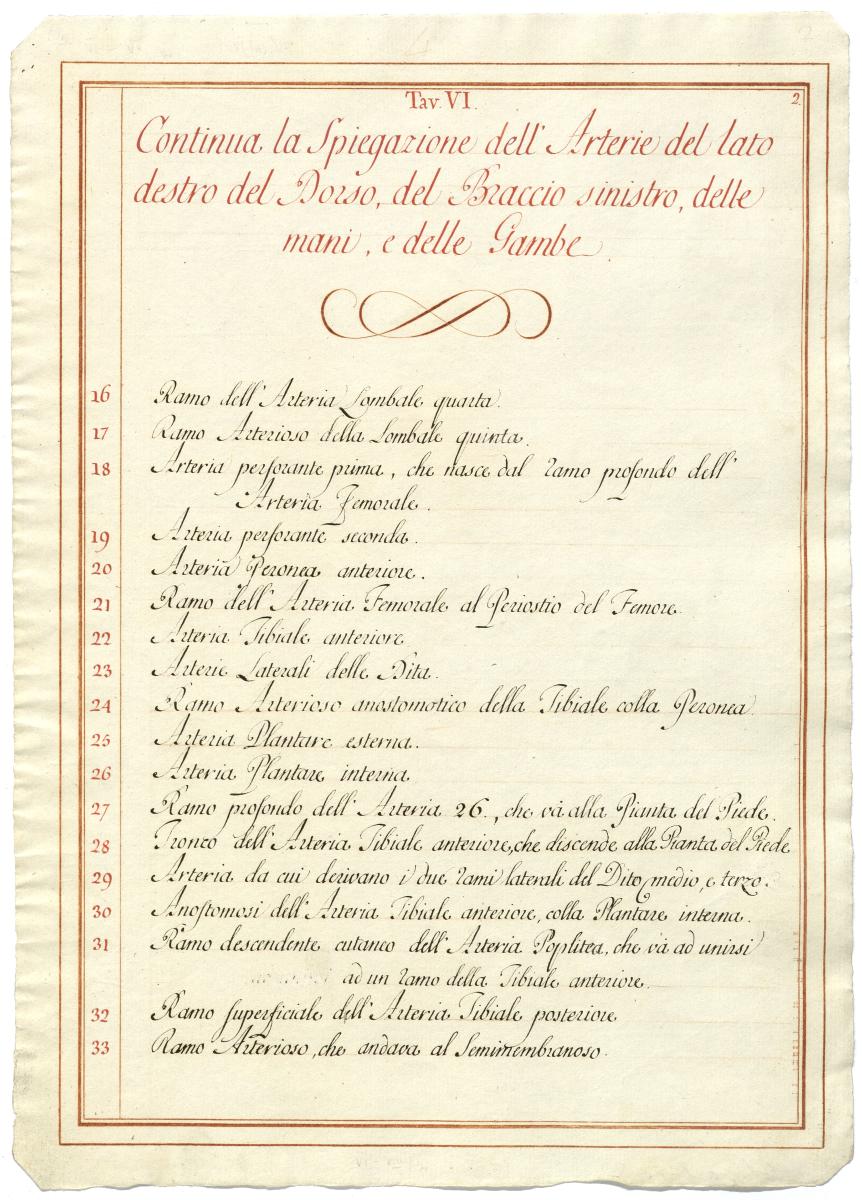 Tav. VI.
2.
Continua la Spiegazione dell' Arterie del lato
destro del Dorso, del Braccio sinistro, delle
mani, e delle Gambe.
16 Ramo dell' Arteria Lombale quarta.
17 Ramo Arterioso della Lombale quinta.
18 Arteria perforante prima, che nasce dal ramo profondo dell'
Arteria Femorale.
19 Arteria perforante seconda.
20 Arteria Peronea anteriore.
21 Ramo dell' Arteria Femorale al Periostio del Femore.
22 Arteria Tibiale anteriore
23 Arterie Laterali delle Dita.
24 Ramo Arterioso anostomotico della Tibiale colla Peronea.
25 Arteria Plantare esterna.
26 Arteria Plantare interna
27 Ramo profondo dell' Arteria 26., che và alla Pianta del Piede.
28 Tronco dell' Arteria Tibiale anteriore, che discende alla Pianta del Piede
29 Arteria da cui derivano i due rami laterali del Dito medio, e terzo.
30 Anostomosi dell' Arteria Tibiale anteriore, colla Plantare interna.
31 Ramo descendente cutaneo dell' Arteria Poplitea, che và ad unirsi
ad un ramo della Tibiale anteriore.
32 Ramo superficiale dell' Arteria Tibiale posteriore
33 Ramo Arterioso, che andava al Semimembranoso.